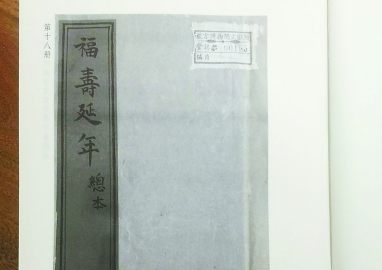 第十八册
福壽延年
總本